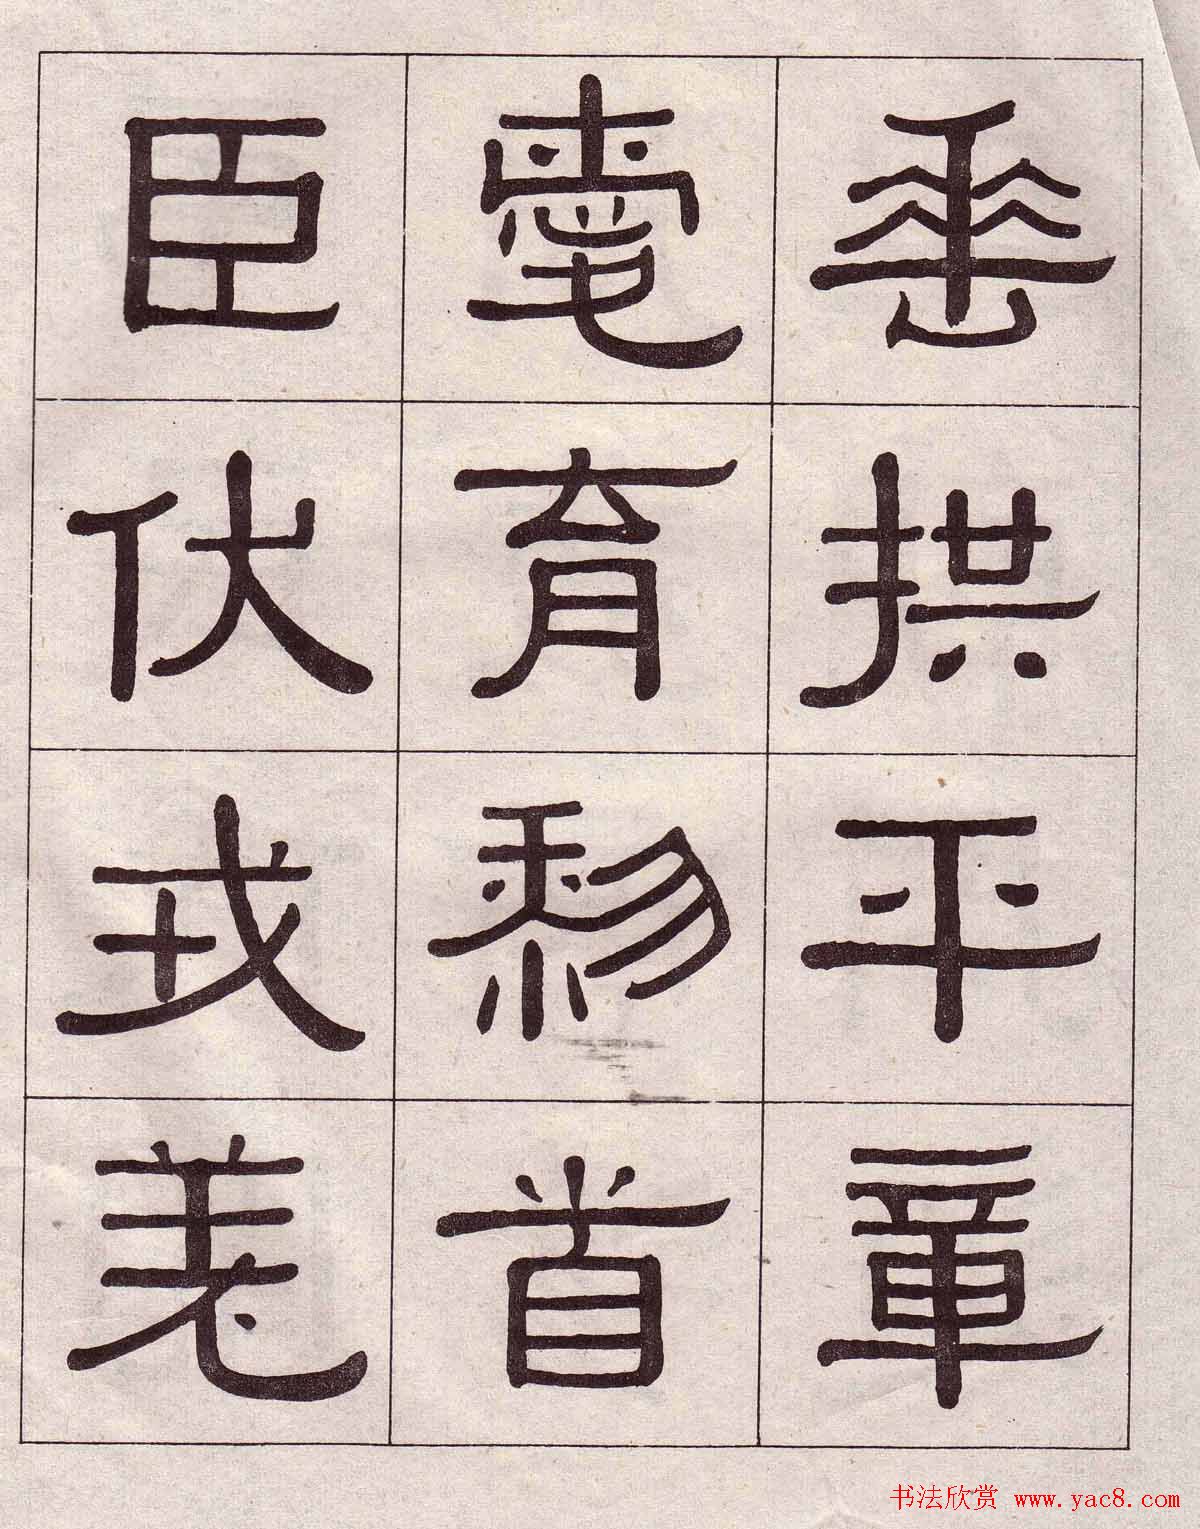 垂拱平章
愛育黎首
臣伏戎羌
书法欣赏 www.yac8.com